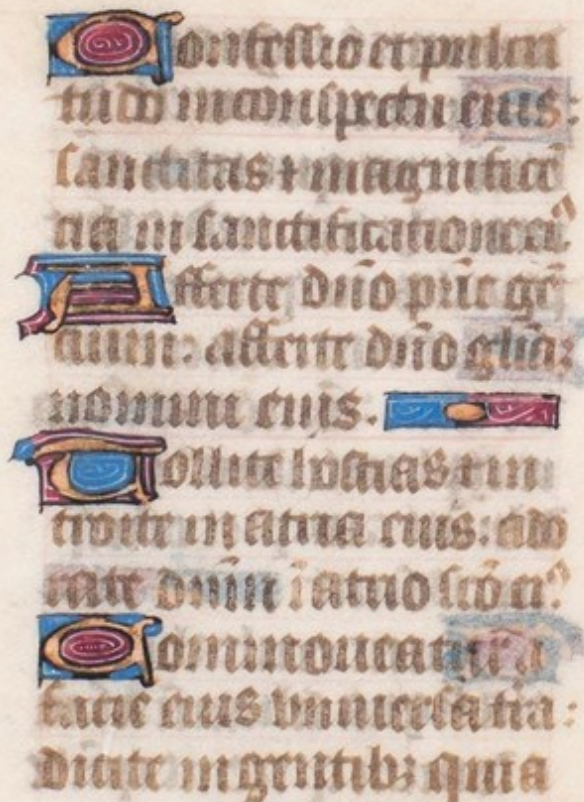 Confessio et pulcri
tudo in conspectu eius:
sanctitas ⁊ magnificē
cia in sanctificatione eiꝰ.
Afferte dn̄o pr̄ie gē
cium: afferte dn̄o gl̄iaꝫ
nomini eius.
Tollite hostias ⁊ in
troite in atria eius: ado
rate dn̄m i atrio sc̄o eiꝰ
Commoueatur a
facie eius vniuersa t̄ra:
dicite in gentibꝫ quia